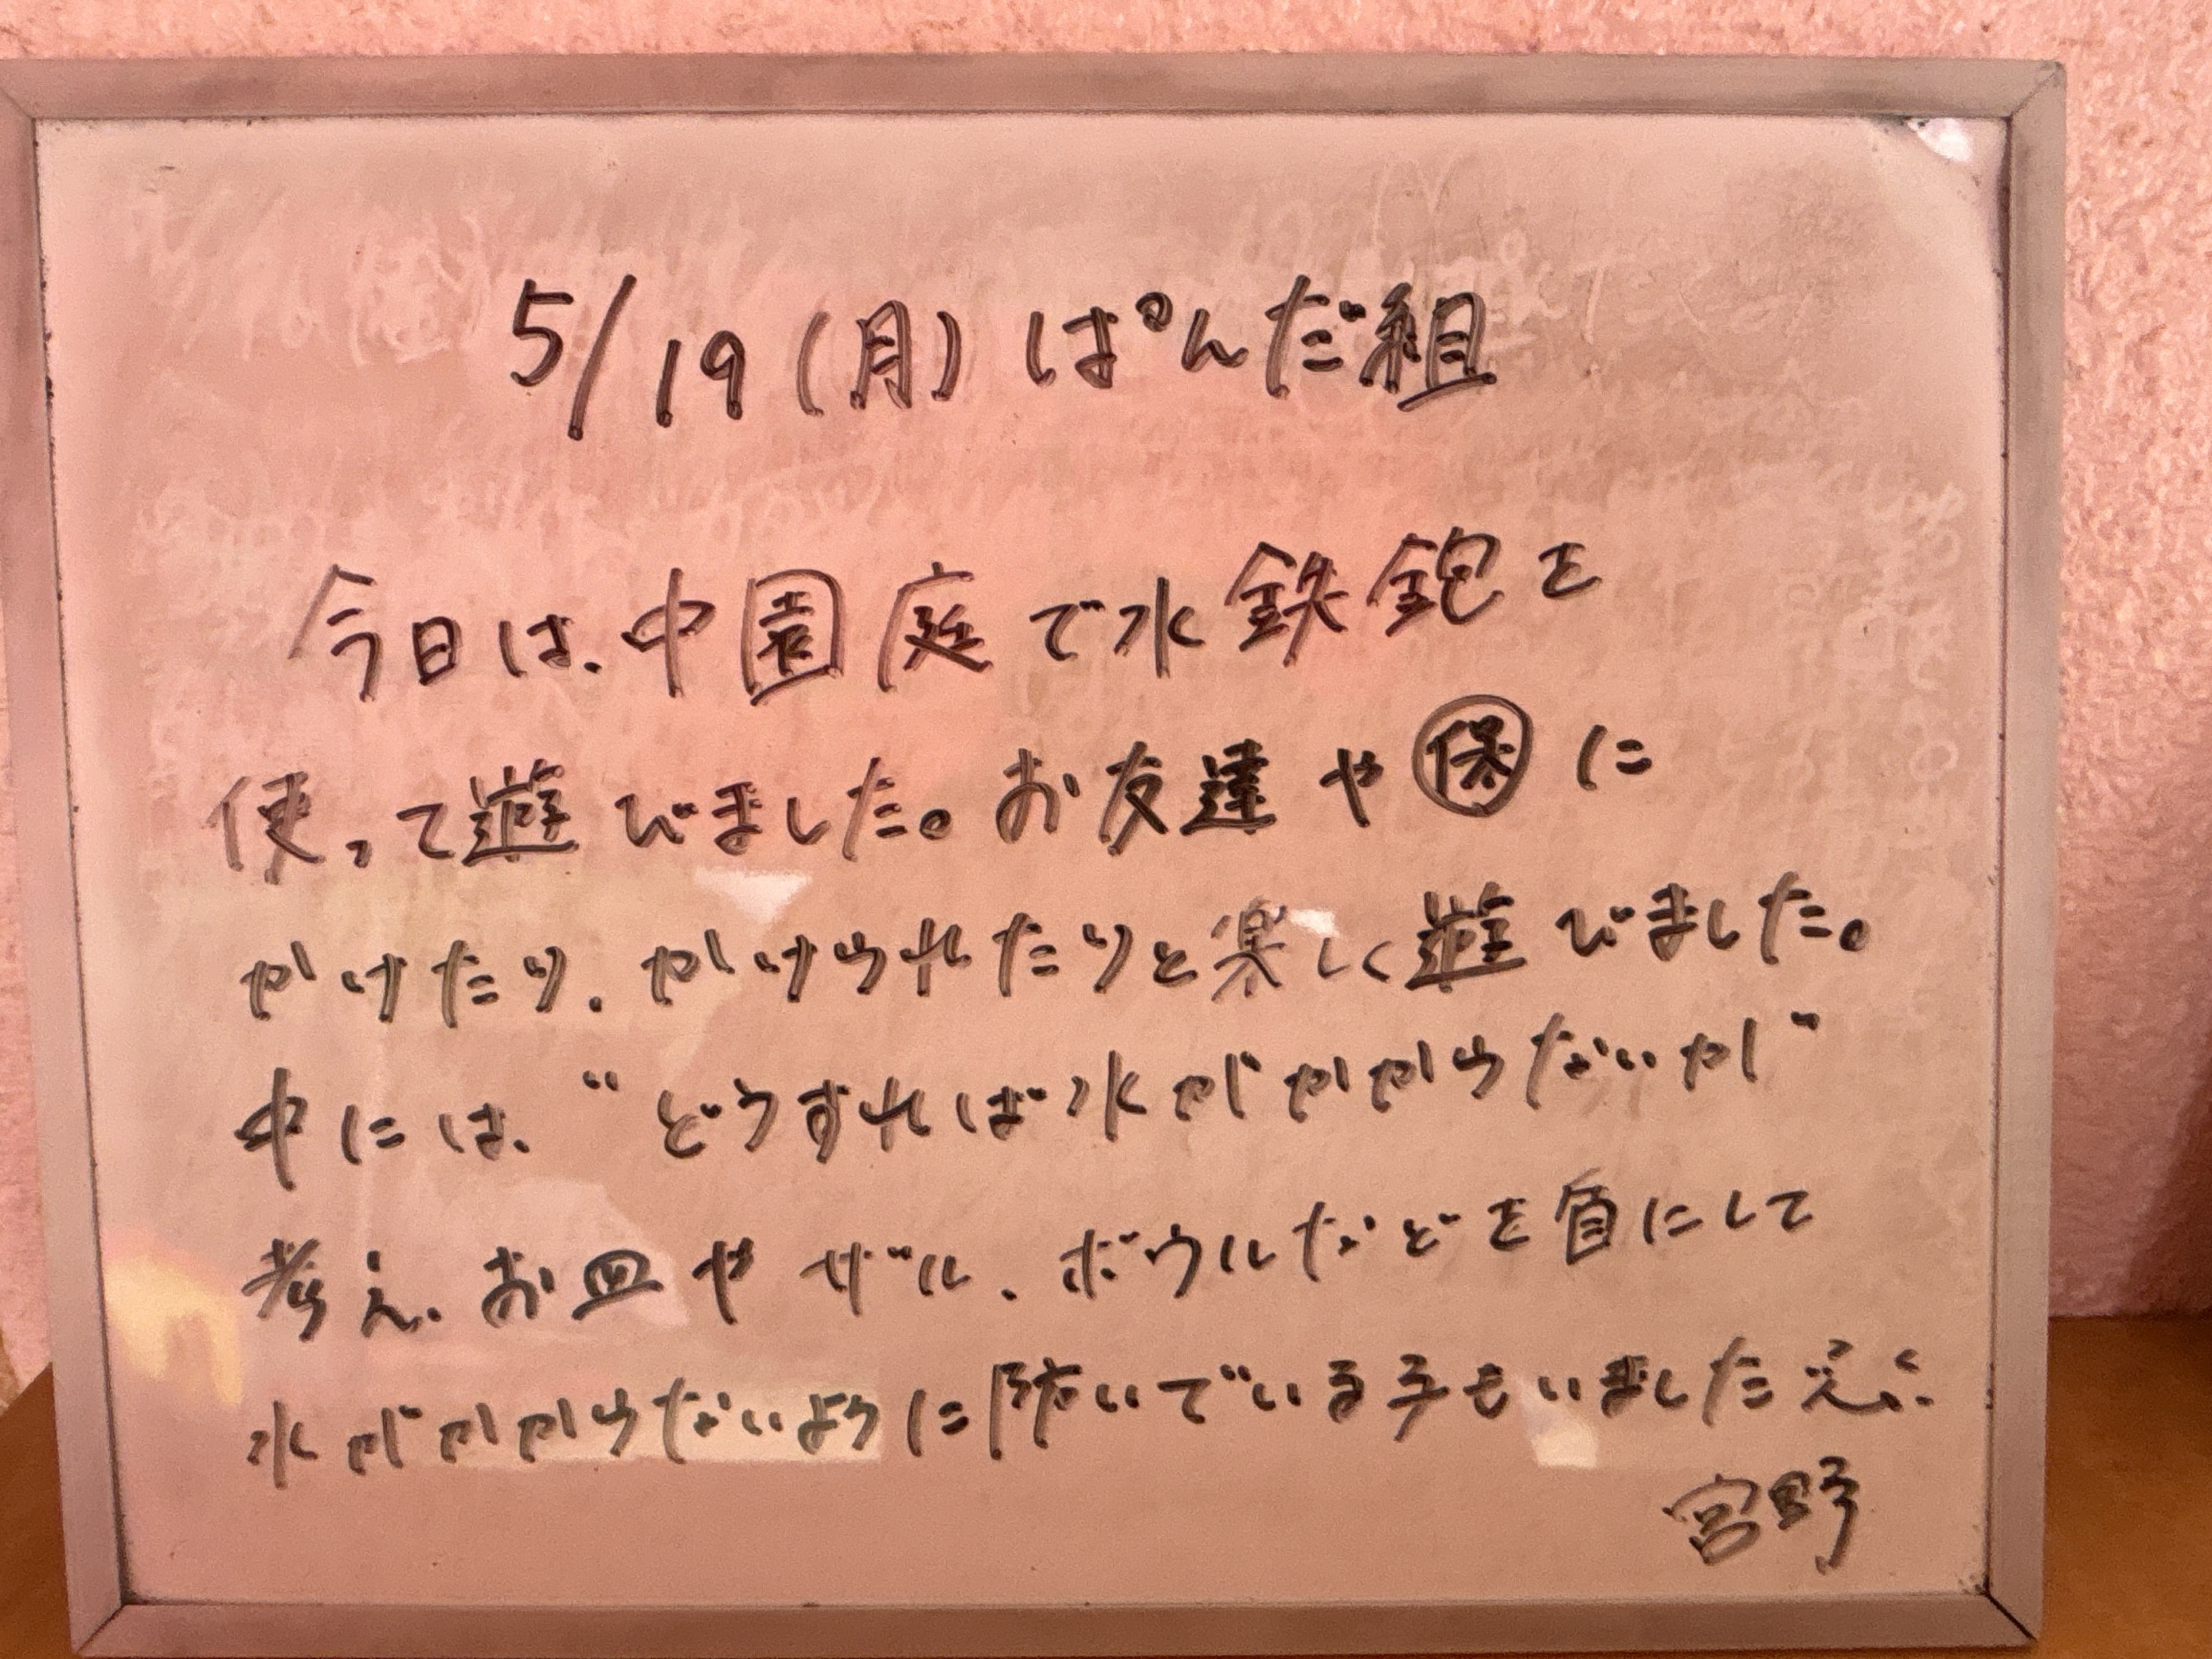 5/19(月) ぱんだ組
今日は、中園庭で水鉄鉋を
使って遊びました。お友達や㋭に
かけたり、かけられたりと楽しく遊びました。
中には、“どうすれば水がかからないか”
考え、お皿やザル、ボウルなどを盾にして
水がかからないように防いでいる子もいました
宮野